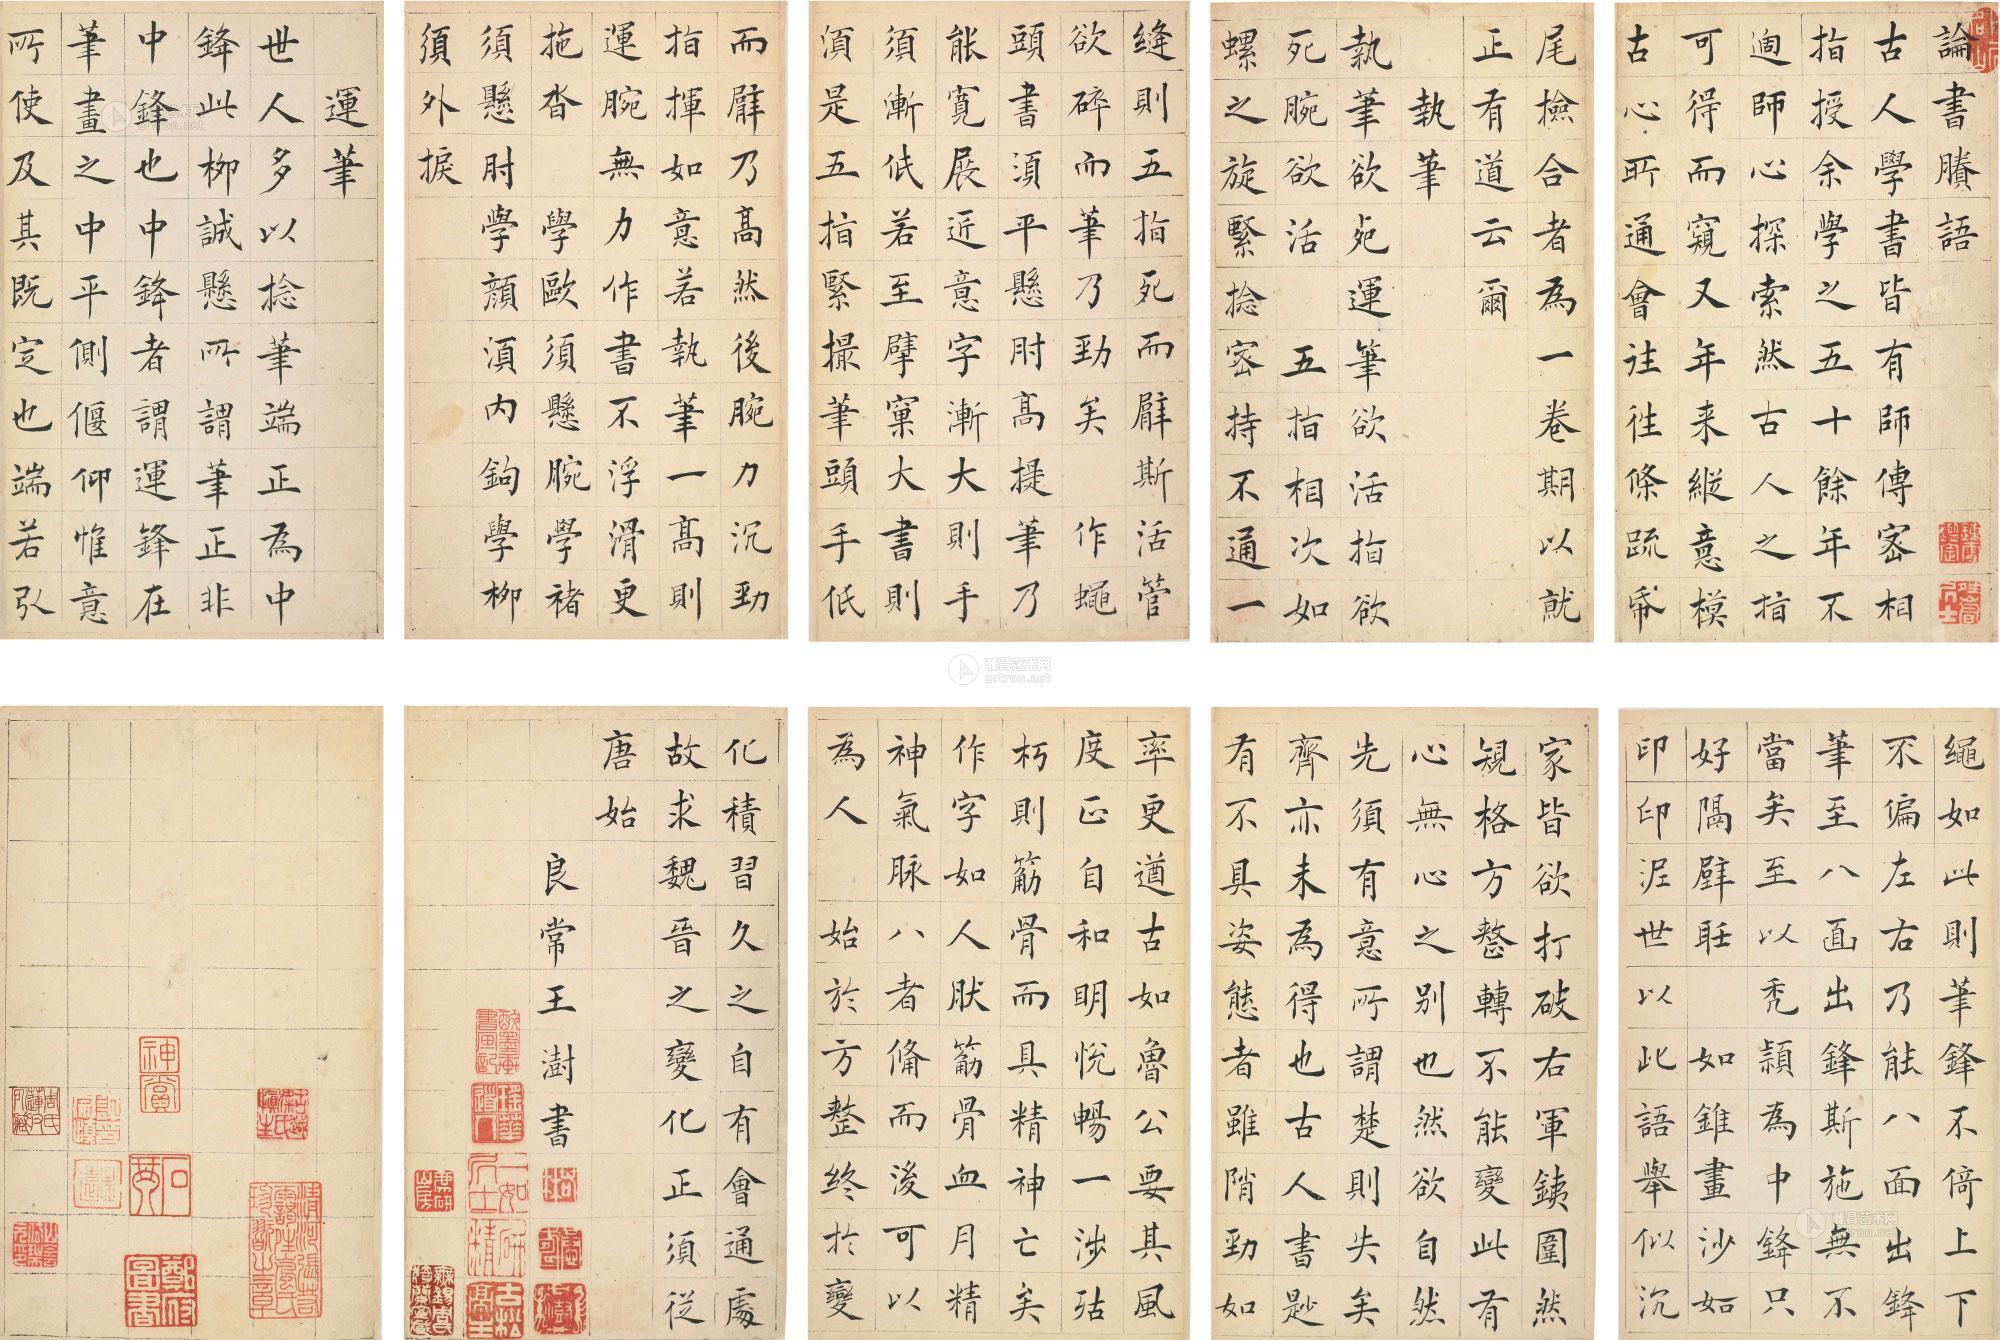 論書賸語
古人學書皆有師傳密相
指授余學之五十餘年不
逈師心探索然古人之指
可得而窺又年来縱意模
古心所通會往往條疏帋
尾撿合者為一卷期以就
正有道云爾
執筆
執筆欲死運筆欲活指欲
死腕欲活 五指相次如
螺之旋緊捻密持不通一
縫則五指死而臂斯活管
欲碎而筆乃勁矣 作蠅
頭書湏平懸肘高提筆乃
能寬展近意字漸大則手
須漸低若至擘窠大書則
湏是五指緊撮筆頭手低
而臂乃高然後腕力沉勁
指揮如意若執筆一高則
運腕無力作書不浮滑更
拖沓 學歐須懸腕學褚
須懸肘 學顔湏内鉤學柳
須外捩
運筆
世人多以捻筆端正為中
鋒此柳誠懸所謂筆正非
中鋒也中鋒者謂運鋒在
筆畫之中平側偃仰惟意
所使及其既定也端若引
繩如此則筆鋒不倚上下
不偏左右乃能八面出鋒
筆至八面出鋒斯施無不
當矣至以秃頴為中鋒只
好隔壁聽 如錐畫沙如
印印泥世以此語舉似沉
家皆欲打破右軍鐵圍然
規格方整轉不能變此有
心無心之別也然欲自然
先須有意所謂楚則失矣
齊亦未為得也古人書尟
有不具姿態者雖陗勁如
率更遒古如魯公要其風
度正自和明悅暢一涉枯
朽則筋骨而具精神亡矣
作字如人肰筋骨血月精
神氣脉八者備而後可以
為人 始於方整終於變
化積習久之自有會通處
故求魏晉之變化正須從
唐始
良常王澍書
雅昌艺术网
artron.net